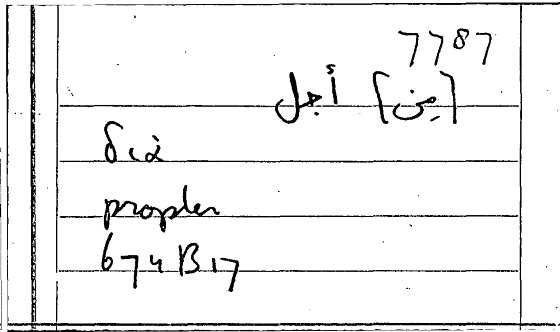 7787
[من] أجل
διὰ
propter
674B17